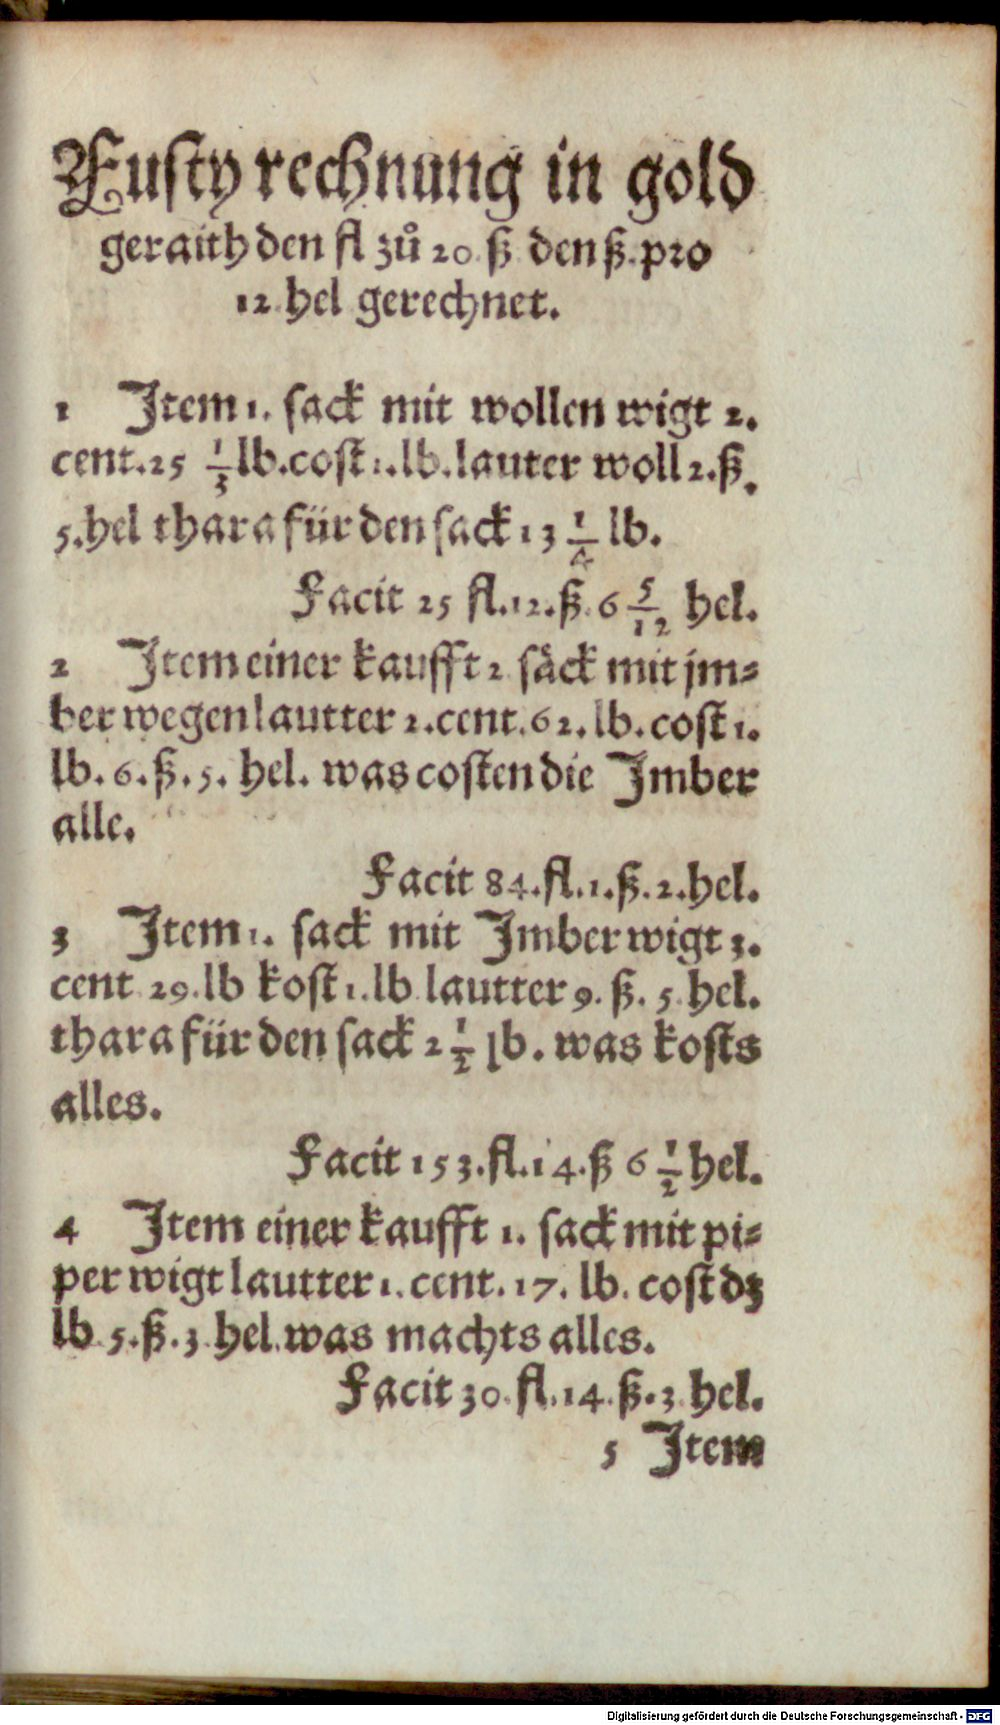 Fusty rechnung in gold
geraith den fl zů 20 ß den ß. pro
12 hel gerechnet.
1 Item 1. sack mit wollen wigt 2.
cent. 25 1/3 lb. cost 1. lb. lauter woll 2. ß.
5. hel thara für den sack 13 1/4 lb.
Facit 25 fl. 12. ß. 6 5/12 hel.
2 Item einer kaufft 2 säck mit jm=
ber wegen lautter 2. cent. 62. lb. cost 1.
lb. 6. ß. 5. hel. was costen die Imber
alle.
Facit 84. fl. 1. ß. 2. hel.
3 Item 1. sack mit Imber wigt 3.
cent 29. lb kost 1. lb lautter 9. ß. 5 hel.
thara für den sack 2 1/2 lb. was kosts
alles.
Facit 153. fl. 14. ß 6 1/2 hel.
4 Item einer kaufft 1. sack mit pi=
per wigt lautter 1. cent. 17. lb. cost dz
lb 5. ß. 3 hel. was machts alles.
Facit 30. fl. 14 ß. 3 hel.
5 Item
Digitalisierung gefördert durch die Deutsche Forschungsgemeinschaft - DFG